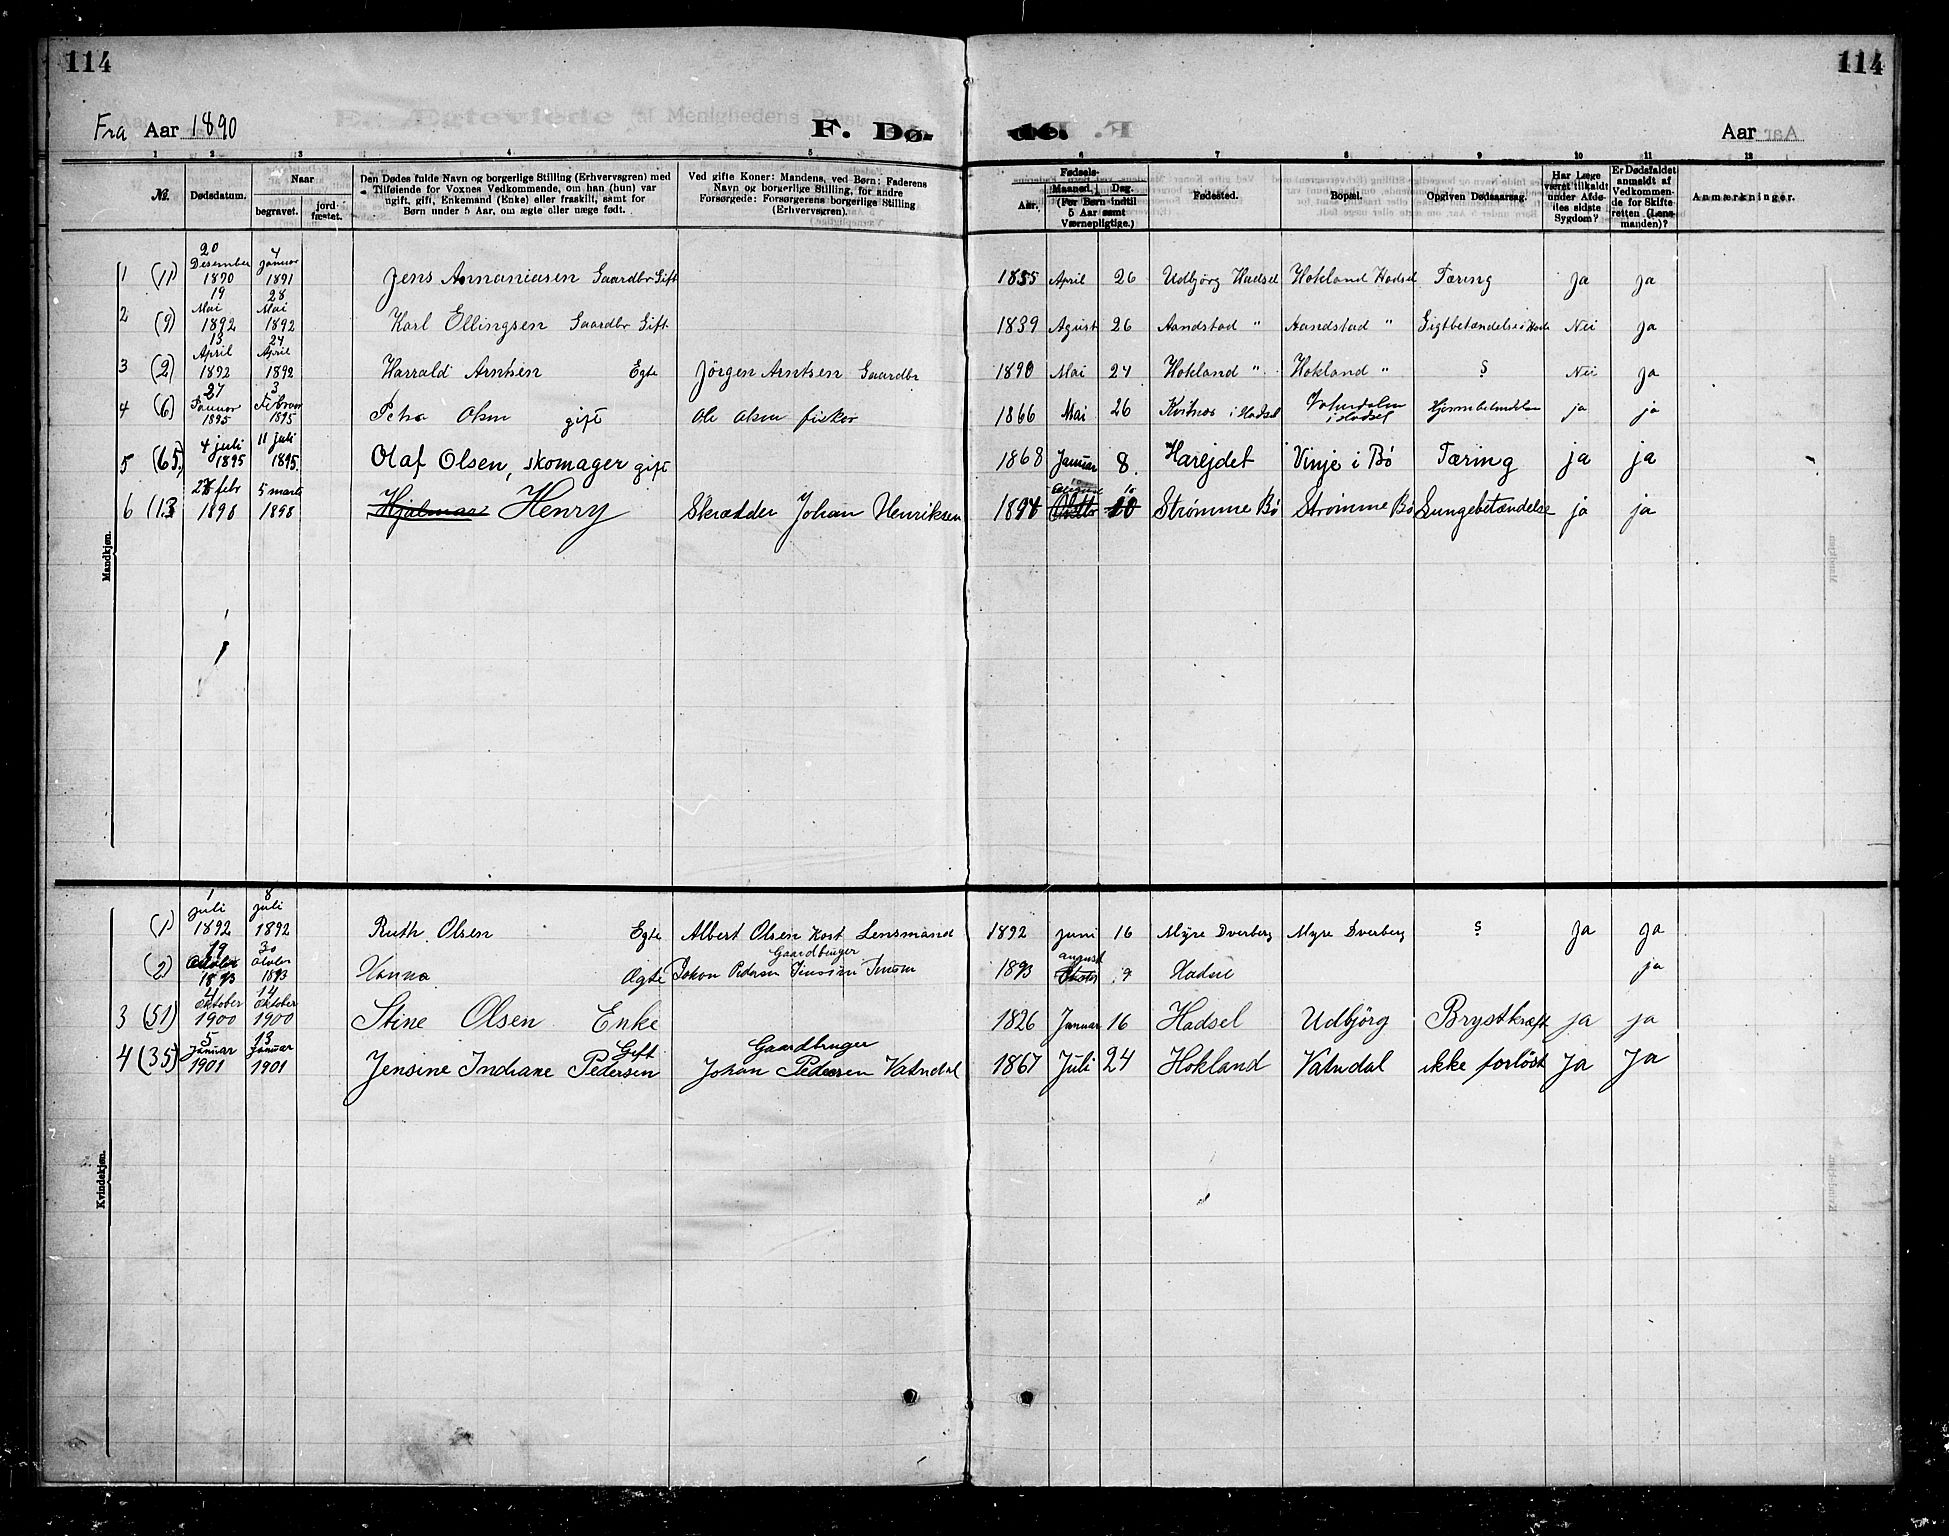 114
114
Fra Aar 1890
F. Dø-
de.
Aar
1 2 3 4 5 6 7 8 9 10 11 12
№.
Dødsdatum.
Naar
begravet.
jord-
fæstet.
Den Dødes fulde Navn og borgerlige Stilling (Erhvervsgren) med
Tilføiende for Voxnes Vedkommende, om han (hun) var
ugift, gift, Enkemand (Enke) eller fraskilt, samt for
Børn under 5 Aar, om ægte eller uægte født.
Ved gifte Koner: Mandens, ved Børn: Faderens
Navn og borgerlige Stilling, for andre
Forsørgede: Forsørgerens borgerlige Stilling
(Erhvervsgren).
Fødsels-
Aar.
Maaned.
Dag.
(For Børn indtil
5 Aar samt
Værnepligtige.)
Fødested.
Bopæl.
Opgiven Dødsaarsag.
Har Læge
været tilkaldt
under Afdø-
des sidste
Sygdom?
Er Dødsfaldet
anmeldt af
Vedkommen-
de for Skifte-
retten (Lens-
manden)?
Anmærkninger.
Mandkjøn.
1 (11) 20 Desember 1890 4 Januar 1891 Jens Annaniasen Gaardbr Gift 1855 April 26 Udbjörg Hadsel Hokland Hadsel Tæring Ja Ja
2 (9) 19 Mai 1892 28 Mai 1892 Karl Ellingsen Gaardbr Gift 1839 Agust 26 Aandstad " Aandstad " Gigtbetændelse i Nei Ja
3 (2) 13 April 1892 24 April 1892 Harrald Arntsen Egte Jörgen Arntsen Gaardbr 1890 Mai 24 Hokland " Hokland " ? Nei Ja
4 (6) 27 Januar 1895 3 Februar 1895 Petra Olsen gift Ole Olsen fisker 1866 Mai 26 Kvitnes i Hadsel i Hadsel ja ja
5 (65.) 4 juli 1895 11 juli 1895. Olaf Olsen, skomager gift 1868 Januar 8. Harejdet Vinje i Bø Tæring ja ja
6 (13 febr 1898 5 marts 1898 Hjalmar Henry Skrædder Johan Henriksen August 10 Strømme Bø Strømme Bø Lungebetændelse ja ja
Kvindekjøn.
(1) 1 juli 1892 8 juli 1892 Ruth Olsen Egte Albert Olsen Kost Lensmand 1892 juni 16 Myre Dverberg Myre Dverberg ? Ja Ja
(2) 19 Oktober 1893 30 Oktober 1893 Hanna Ogte Johan Pedersen Gaardbruger 1893 august 9 Hadsel ja
3 (51) 4 Oktober 1900 14 Oktober 1900 Stine Olsen Enke 1826 Januar 16 Hadsel Udbjörg Brystkræft ja ja
4 (35) 5 Januar 1901 13 Januar 1901 Jensine Indiane Pedersen Gift Gaardbruger Johan Pedersen Vatndal 1867 Juli 24 Hokland Vatndal ikke forløst Ja Ja